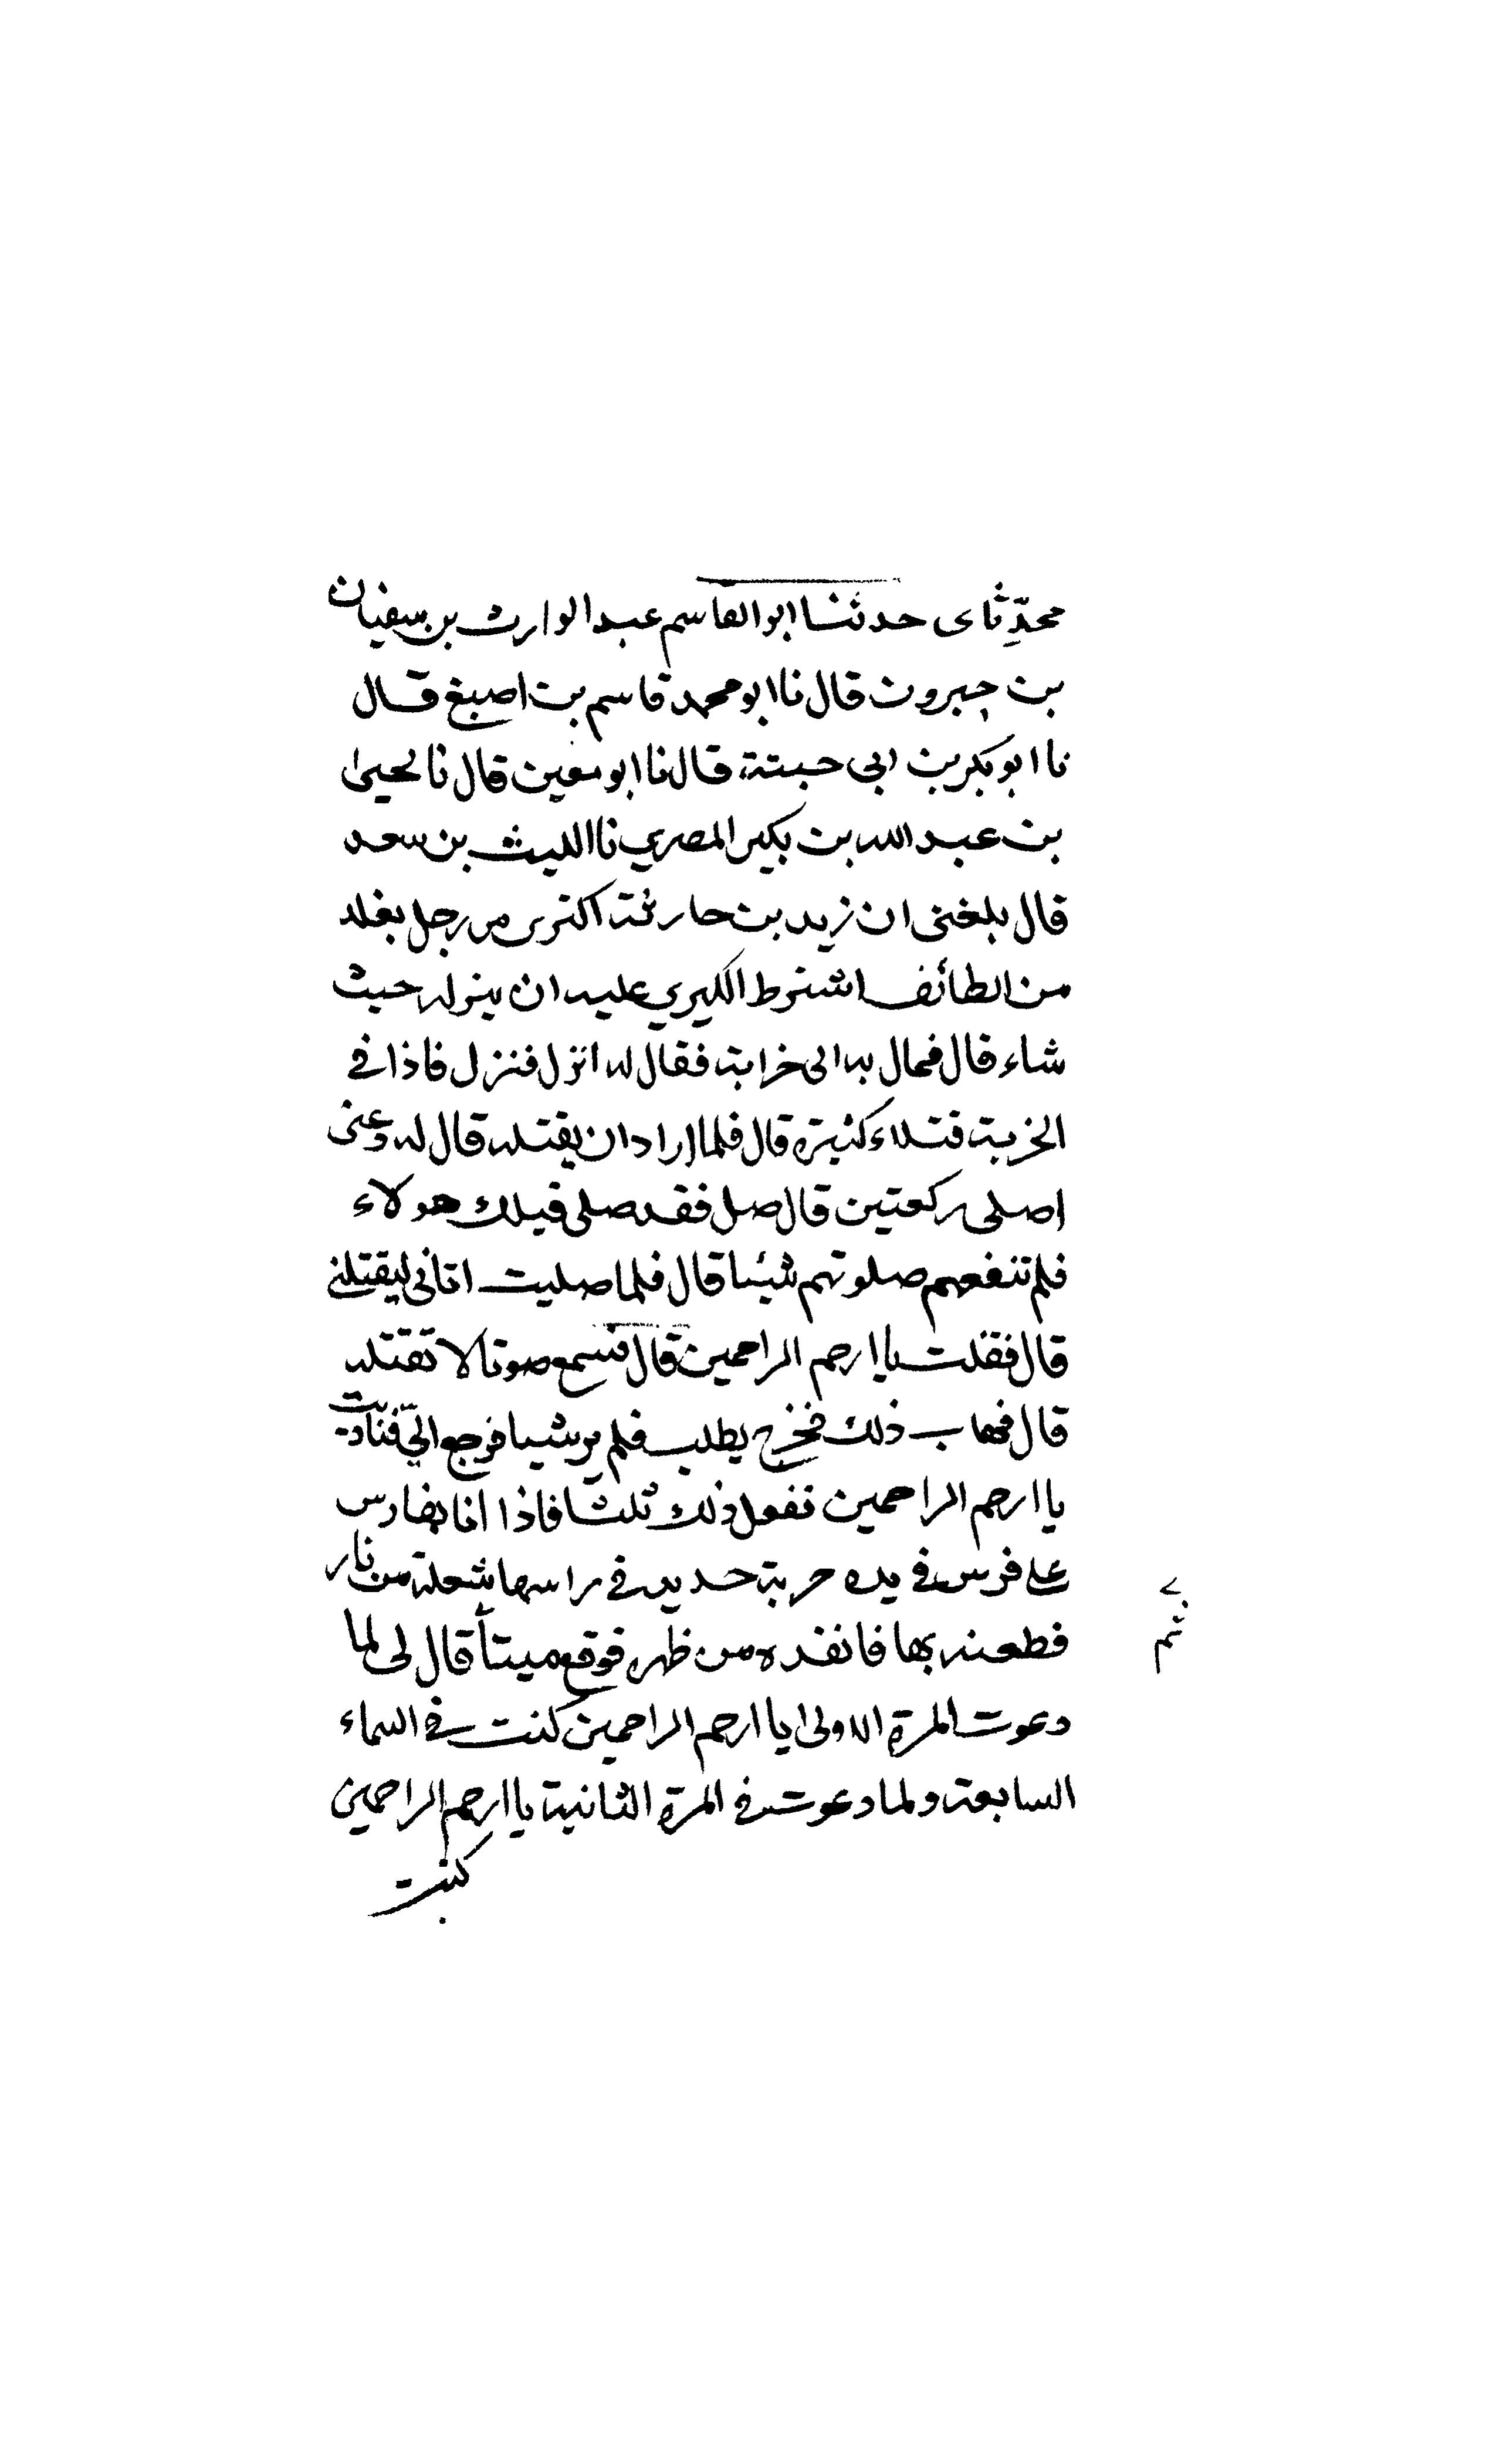 محدّثاى حدثنا ابوالقاسم عبدالوارث بن سفيان
بن جبرون قال نا ابو محمد قاسم بن اصبغ قال
نا ابو بكر بن ابى حبتة قال نا ابو معين قال نا يحيى
بن عبد الله بن بكير المصري نا الليث بن سعد
قال بلغنى ان زيد بن حارثة اكترى من رجل بغله
من الطائف اشترط الكيري عليه ان ينزله حيث
شاء قال فمال به الى خرابة فقال له انزل فنزل فاذا في
الخربة قتلاء كثيرة قال فلما اراد ان يقتله قال له دعنى
اصلى ركعتين قال صل فقد صلى قبلك هولاء
فلم تنفعهم صلوتهم شيئا قال فلما صليت اتانى ليقتلنى
قال فقلت يا ارحم الراحمين قال فسمع صوتا لا تقتله
قال فهاب ذلك فخرج يطلب فلم ير شيا فرجع اليّ فناديت
يا ارحم الراحمين ففعل ذلك ثلثا فاذا انا بفارس
على فرس في يده حربة حديد في راسها شعلة من نار
فطعنه بها فانفده من ظهره فوقع ميتاً قال لى لما
ثم
دعوت المرة الاولى ايا ارحم الراحمين كنت في السماء
السابعة ولما دعوت في المرة الثانية يا ارحم الراحمين
كنت